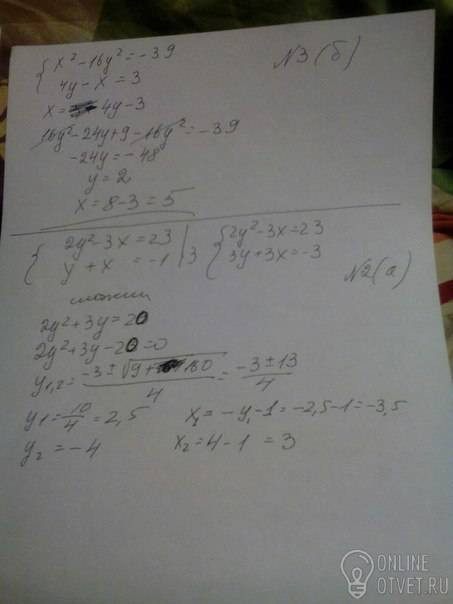 x² - 16y² = -39
N3 (б)
4y - x = 3
x = 4y - 3
16y² - 24y + 9 - 16y² = -39
-24y = -48
y = 2
x = 8 - 3 = 5
{ 2y² - 3x = 23 | { 2y² - 3x = 23
y + x = -1 | 3 3y + 3x = -3
N2 (а)
сложим
2y² + 3y = 20
2y² + 3y - 20 = 0
y1,2 = (-3 ± √(9 + 160)) / 4 = (-3 ± 13) / 4
y1 = 10/4 = 2,5 x1 = -y1 - 1 = -2,5 - 1 = -3,5
y2 = -4 x2 = 4 - 1 = 3
ONLINE
OTVET.RU